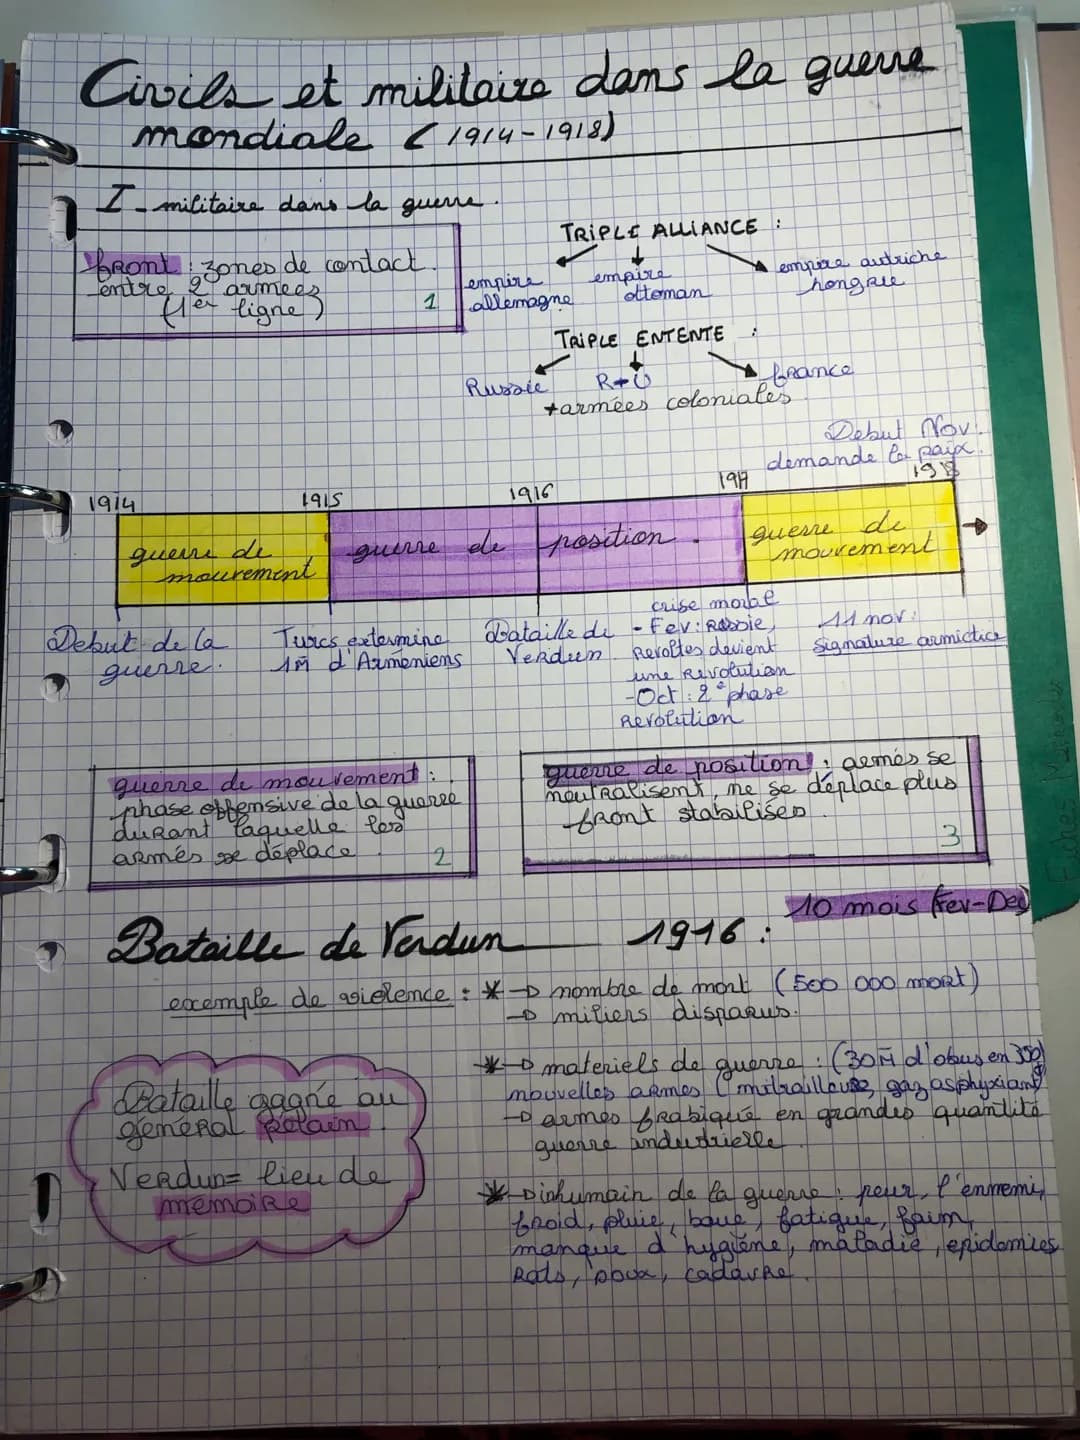 Civils et militaire dans la guerre
mondiale (1914-1918)
I - militaire dans la guerre.
front : zones de contact
entre 2 armées
(1er ligne)
1
TRIPLE ALLIANCE :
empire
allemagne
empire
ottoman
empire autriche
hongrie
TRIPLE ENTENTE :
Russie
R+U
france
+armées coloniales
Debut Nov:
demande la paix.
1914
1915
1916
1917
1918
guerre de
mouvement
guerre de position.
guerre de
mouvement
Debut de la
guerre.
Turcs extermine
1M d'Armeniens
Bataille de
Verdun.
crise morale
- Fev: Russie,
Revoltes devient
une Revolution
-Oct : 2e phase
Revolution
11 nov:
signature armictice
guerre de mouvement :
phase offensive de la guerre
durant laquelle les
armés se déplace.
2
guerre de position : armés se
neutralisent, ne se déplace plus
front stabilisés.
3
10 mois (Fev-Dec)
Bataille de Verdun 1916 :
exemple de violence : * → nombre de mort (500 000 mort)
→ miliers disparus.
* → materiels de guerre : (30M d'obus en 300j
nouvelles armes (mitrailleuse, gaz asphyxiant)
→ armes frabiqué en grandes quantité
guerre industrielle.
Bataille gagné au
general Petain.
Verdun = lieu de
mémoire
* → inhumain de la guerre : peur, l'ennemi,
froid, pluie, boue, fatigue, faim,
manque d'hygiène, maladie, epidemies
Rats, poux, cadavre.